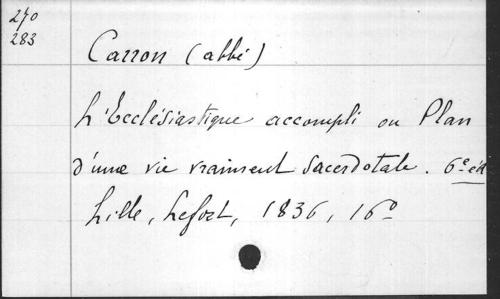 270
283
Carron (abbé)
L'Ecclésiastique accompli ou Plan
d'une vie vraiment sacerdotale. 6e éd
Lille, Lefort, 1836, 16°